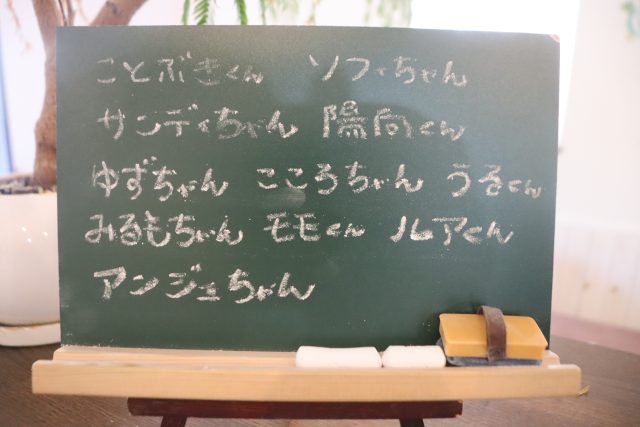 ことぶきくん ソフィちゃん
サンディちゃん 陽向くん
ゆずちゃん こころちゃん うるくん
みるもちゃん モモくん ルアくん
アンジェちゃん